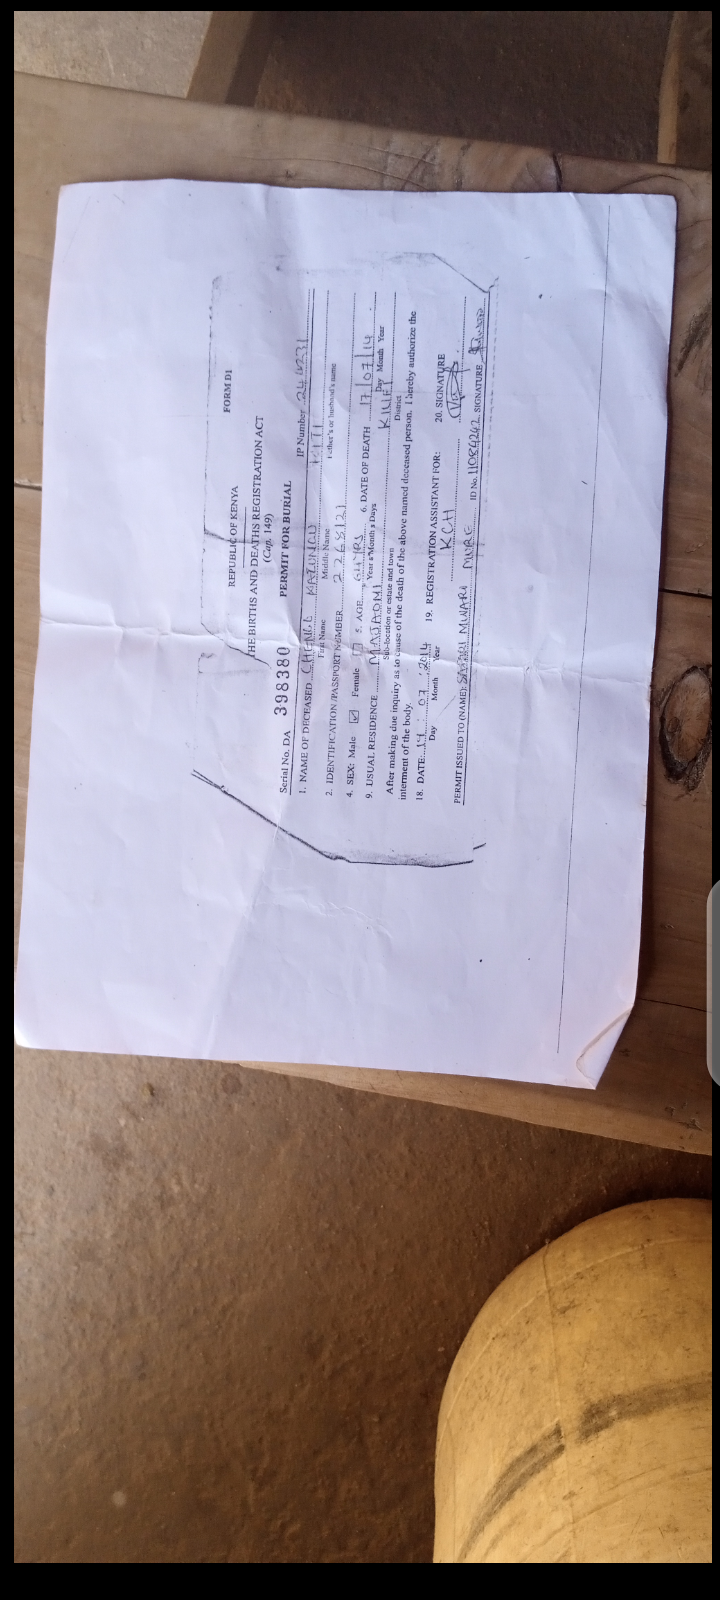 FORM D1
REPUBLIC OF KENYA
THE BIRTHS AND DEATHS REGISTRATION ACT
(Cap. 149)
Serial No. DA 398380 PERMIT FOR BURIAL
IP Number 241231
1. NAME OF DECEASED CHENGE KATUNGU KITI
First Name Middle Name Father's or husband's name
2. IDENTIFICATION/PASSPORT NUMBER
4. SEX: Male ☑ Female ☐ 5. AGE 64 YRS 6. DATE OF DEATH 17/07/14
Years Months Days Day Month Year
9. USUAL RESIDENCE KILIFI
Sub-location or estate and town District
After making due inquiry as to cause of the death of the above named deceased person. I hereby authorize the
interment of the body.
18. DATE: 07 2014 19. REGISTRATION ASSISTANT FOR: 20. SIGNATURE
Day Month Year KCH
PERMIT ISSUED TO (NAME): SAFARI MWARI ID No. 11084242 SIGNATURE